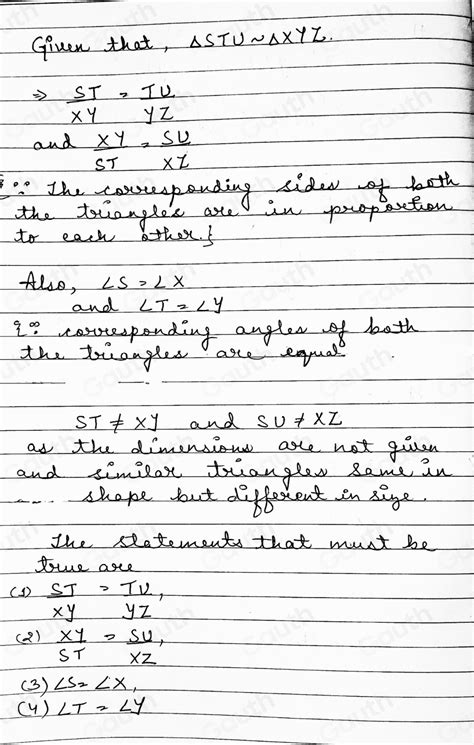 Given that, ΔSTU ~ ΔXYZ.
⇒ ST/XY = TU/YZ
and XY/ST = SU/XZ
{∵ The corresponding sides of both
the triangles are in proportion
to each other.}
Also, ∠S = ∠X
and ∠T = ∠Y
{∵ corresponding angles of both
the triangles are equal
ST ≠ XY and SU ≠ XZ
as the dimensions are not given
and similar triangles same in
shape but different in size.
The statements that must be
true are
(1) ST/XY = TU/YZ,
(2) XY/ST = SU/XZ,
(3) ∠S = ∠X,
(4) ∠T = ∠Y